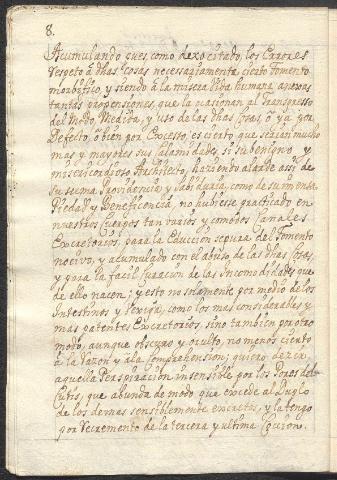 8.
Acumulando pues, como dexo citado, los Errores
respeto á dhas cosas necessariamente cierto fomento
morbifico, y siendo á la misera Vida humana anexas
tantas propensiones, que la ocasionan al Transgresso
del Modo, Medida, y uso de las dhas cosas, ó ya por
Defecto, ó bien por Excesso, es cierto que serian mucho
mas y mayores sus Calamidades, si su benigno y
misericordioso Architecto, haziendo alarde assi de
su suma Providencia y Sabiduria, como de su inmensa
Piedad y Beneficencia no hubiesse practicado en
nuestros Cuerpos tan varios y comodos Canales
Excretorios, para la Educcion segura del Fomento
nocivo, y acumulado con el abuso de las dhas Cosas,
y para la facil curacion de las Incomodidades que
de ello nacen; y esto no solamente por medio de los
Intestinos y Vexiga, como los mas considerables y
mas patentes Excretorios, sino tambien por otro
modo, aunque obscuro y oculto, no menos cierto
á la razon y á la Comprehension; quiero dezir,
aquella Perspiracion insensible por los Poros del
Cutis, que abunda de modo que excede al Duplo
de los demas sensiblemente excretos, y la tengo
por Decremento de la tercera y ultima Coccion.